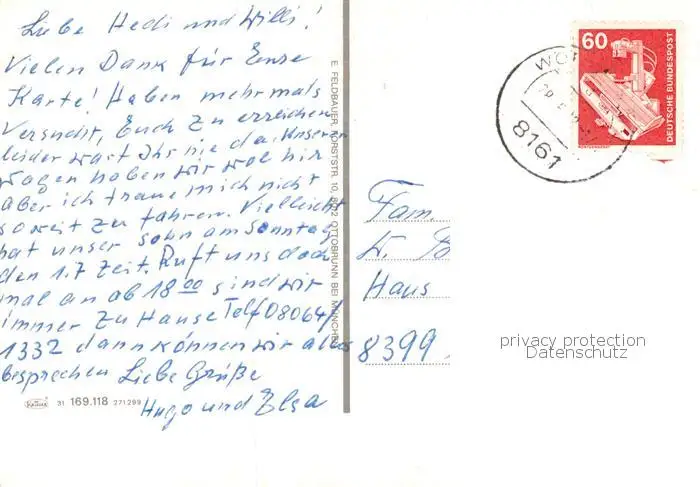 Liebe Hedi und Willi!
Vielen Dank für Eure
Karte! Haben mehrmals
Versucht, Euch zu erreichen
leider wart Ihr nie da. Unseren
Wagen haben wir wol hir
aber ich traue mich nicht
soweit zu fahren. Vielleicht
hat unser Sohn am Sonntag
den 1.7 Zeit. Ruft uns doch
mal an ab 18 00 sind wir
immer zu Hause Telf 08064/
1332 dann können wir alles
besprechen Liebe Grüße
Hugo und Elsa
Krüger 31 169.118 271299
E. FELDBAUER, FORSTSTR. 10, 8012 OTTOBRUNN BEI MÜNCHEN
60
DEUTSCHE BUNDESPOST
8161
Fam.
Haus
8399
privacy protection
Datenschutz